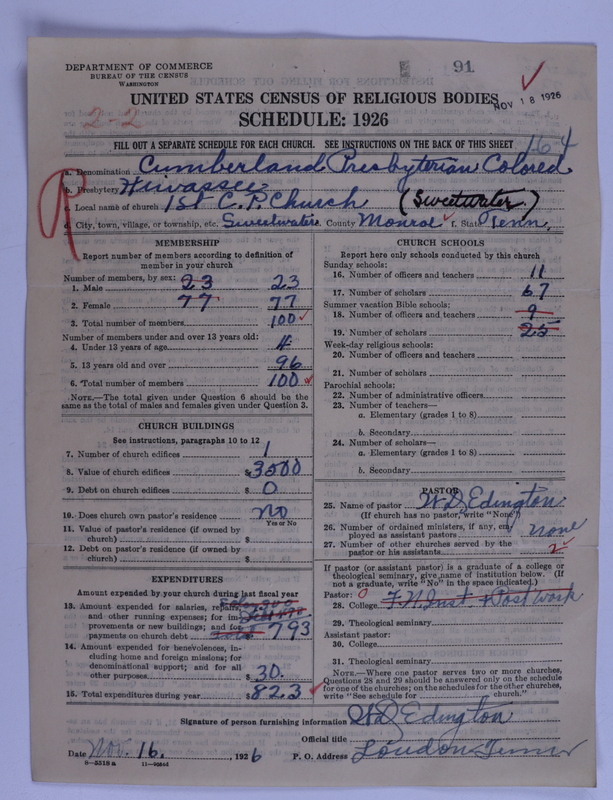 DEPARTMENT OF COMMERCE
BUREAU OF THE CENSUS
WASHINGTON
91
NOV 18 1926
2-2
UNITED STATES CENSUS OF RELIGIOUS BODIES
SCHEDULE: 1926
FILL OUT A SEPARATE SCHEDULE FOR EACH CHURCH. SEE INSTRUCTIONS ON THE BACK OF THIS SHEET
164
a. Denomination Cumberland Presbyterian Colored
b. Presbytery Hiwassee
c. Local name of church 1st C.P. Church (Sweetwater)
d. City, town, village, or township, etc. Sweetwater County Monroe f. State Tenn.
MEMBERSHIP
Report number of members according to definition of
member in your church
Number of members, by sex:
1. Male 23 23
2. Female 77 77
3. Total number of members 100
Number of members under and over 13 years old:
4. Under 13 years of age 4
5. 13 years old and over 96
6. Total number of members 100
NOTE.—The total given under Question 6 should be the
same as the total of males and females given under Question 3.
CHURCH BUILDINGS
See instructions, paragraphs 10 to 12
7. Number of church edifices 1
8. Value of church edifices $3500
9. Debt on church edifices $ 0
10. Does church own pastor's residence? No
Yes or No
11. Value of pastor's residence (if owned by
church) $
12. Debt on pastor's residence (if owned by
church) $
EXPENDITURES
Amount expended by your church during last fiscal year
13. Amount expended for salaries, repairs,
and other running expenses; for im-
provements or new buildings; and for
payments on church debt 793
14. Amount expended for benevolences, in-
cluding home and foreign missions; for
denominational support; and for all
other purposes $ 30.
15. Total expenditures during year $823
CHURCH SCHOOLS
Report here only schools conducted by this church
Sunday schools:
16. Number of officers and teachers 11
17. Number of scholars 67
Summer vacation Bible schools:
18. Number of officers and teachers 9
19. Number of scholars 25
Week-day religious schools:
20. Number of officers and teachers
21. Number of scholars
Parochial schools:
22. Number of administrative officers
23. Number of teachers—
a. Elementary (grades 1 to 8)
b. Secondary
24. Number of scholars—
a. Elementary (grades 1 to 8)
b. Secondary
PASTOR
25. Name of pastor W D Edington
(If church has no pastor, write "None")
26. Number of ordained ministers, if any, em-
ployed as assistant pastors none
27. Number of other churches served by the
pastor or his assistants 2
If pastor (or assistant pastor) is a graduate of a college or
theological seminary, give name of institution below. (If
not a graduate, write "No" in the space indicated.)
Pastor: 0
28. College F.N. Inst. Post Work
29. Theological seminary
Assistant pastor:
30. College
31. Theological seminary
NOTE.—Where one pastor serves two or more churches,
Questions 28 and 29 should be answered only on the schedule
for one of the churches; on the schedules for the other churches,
write "See schedule for church."
Signature of person furnishing information W D Edington
Official title
Date Nov. 16, 1926 P. O. Address Loudon Tenn
8-3318a 11-9884d